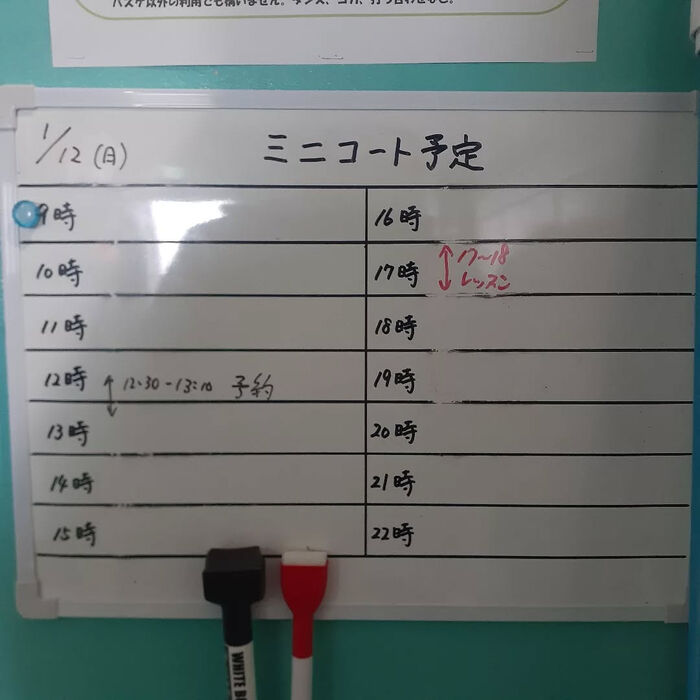 バスケ以外の利用でも構いません。ダンス、ヨガ、打ち合わせなど。
1/12(日)
ミニコート予定
9時
10時
11時
12時 12:30-13:10 予約
13時
14時
15時
16時
17時 17~18
レッスン
18時
19時
20時
21時
22時
WHITE B